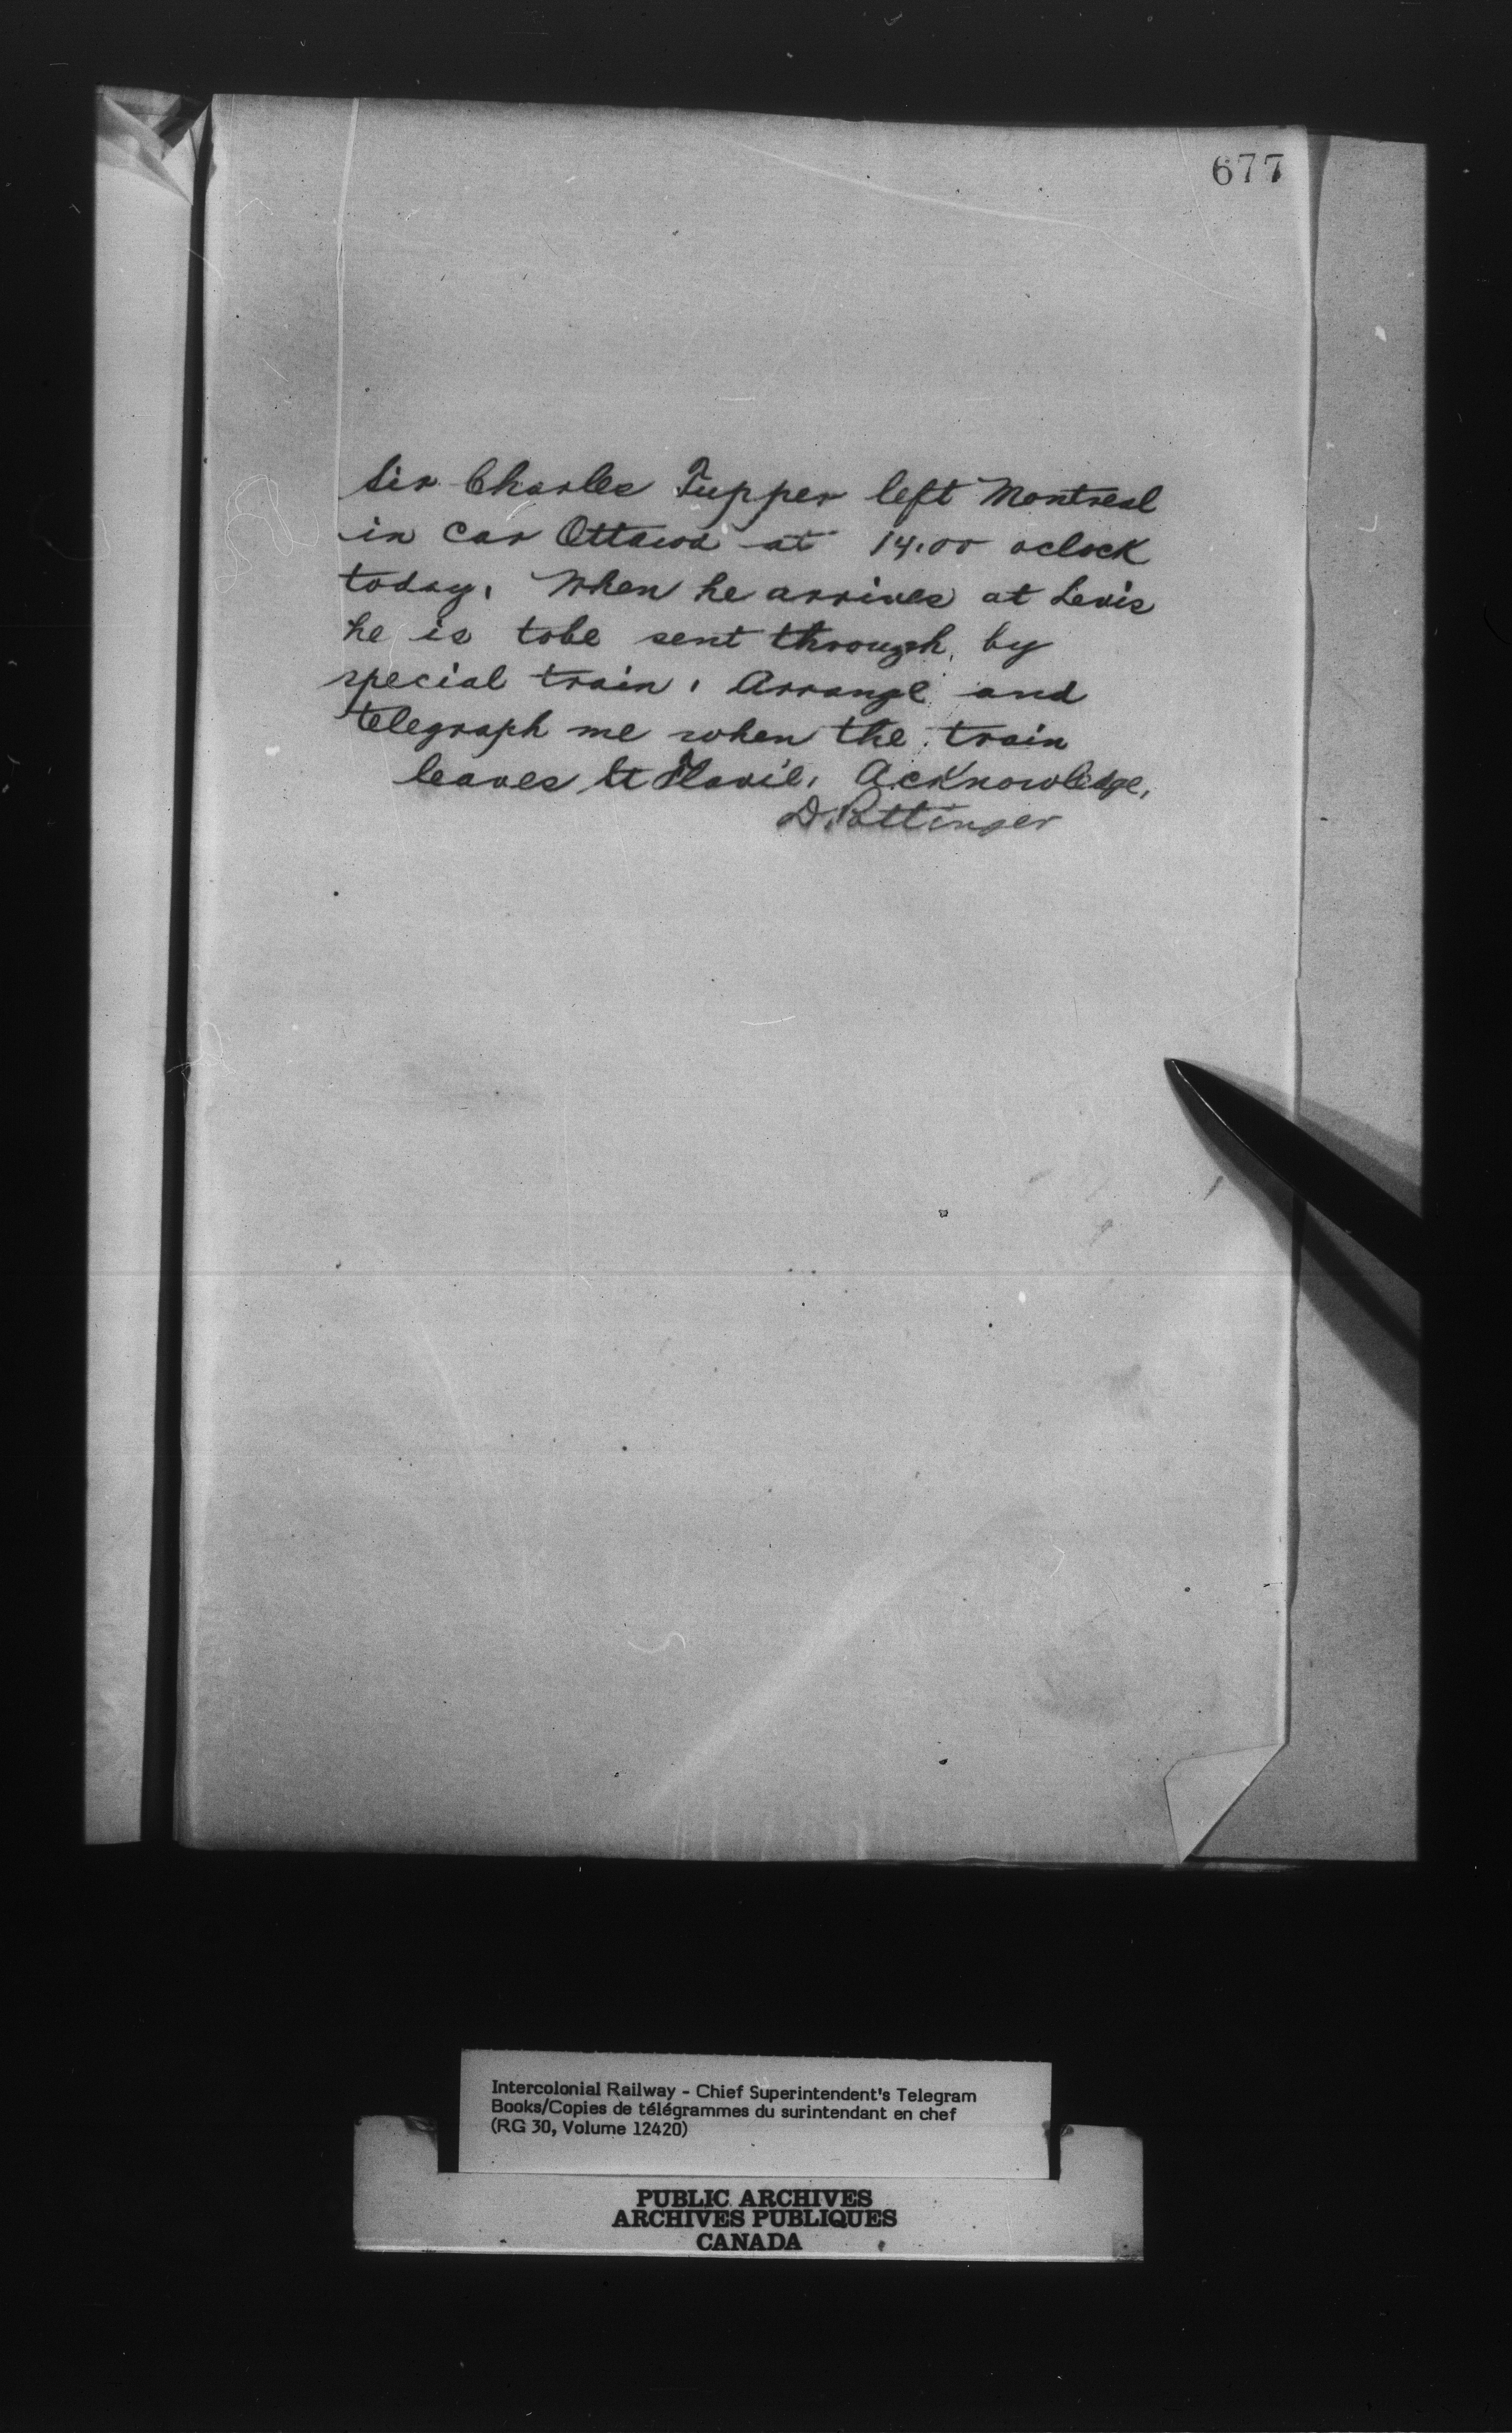 677
Sir Charles Tupper left Montreal
in Car Ottawa at 14.00 oclock
today. When he arrives at Levis
he is tobe sent through by
special train. Arrange and
telegraph me when the train
leaves St Flavie. Acknowledge.
D. Pottinger
Intercolonial Railway - Chief Superintendent's Telegram
Books/Copies de télégrammes du surintendant en chef
(RG 30, Volume 12420)
PUBLIC ARCHIVES
ARCHIVES PUBLIQUES
CANADA